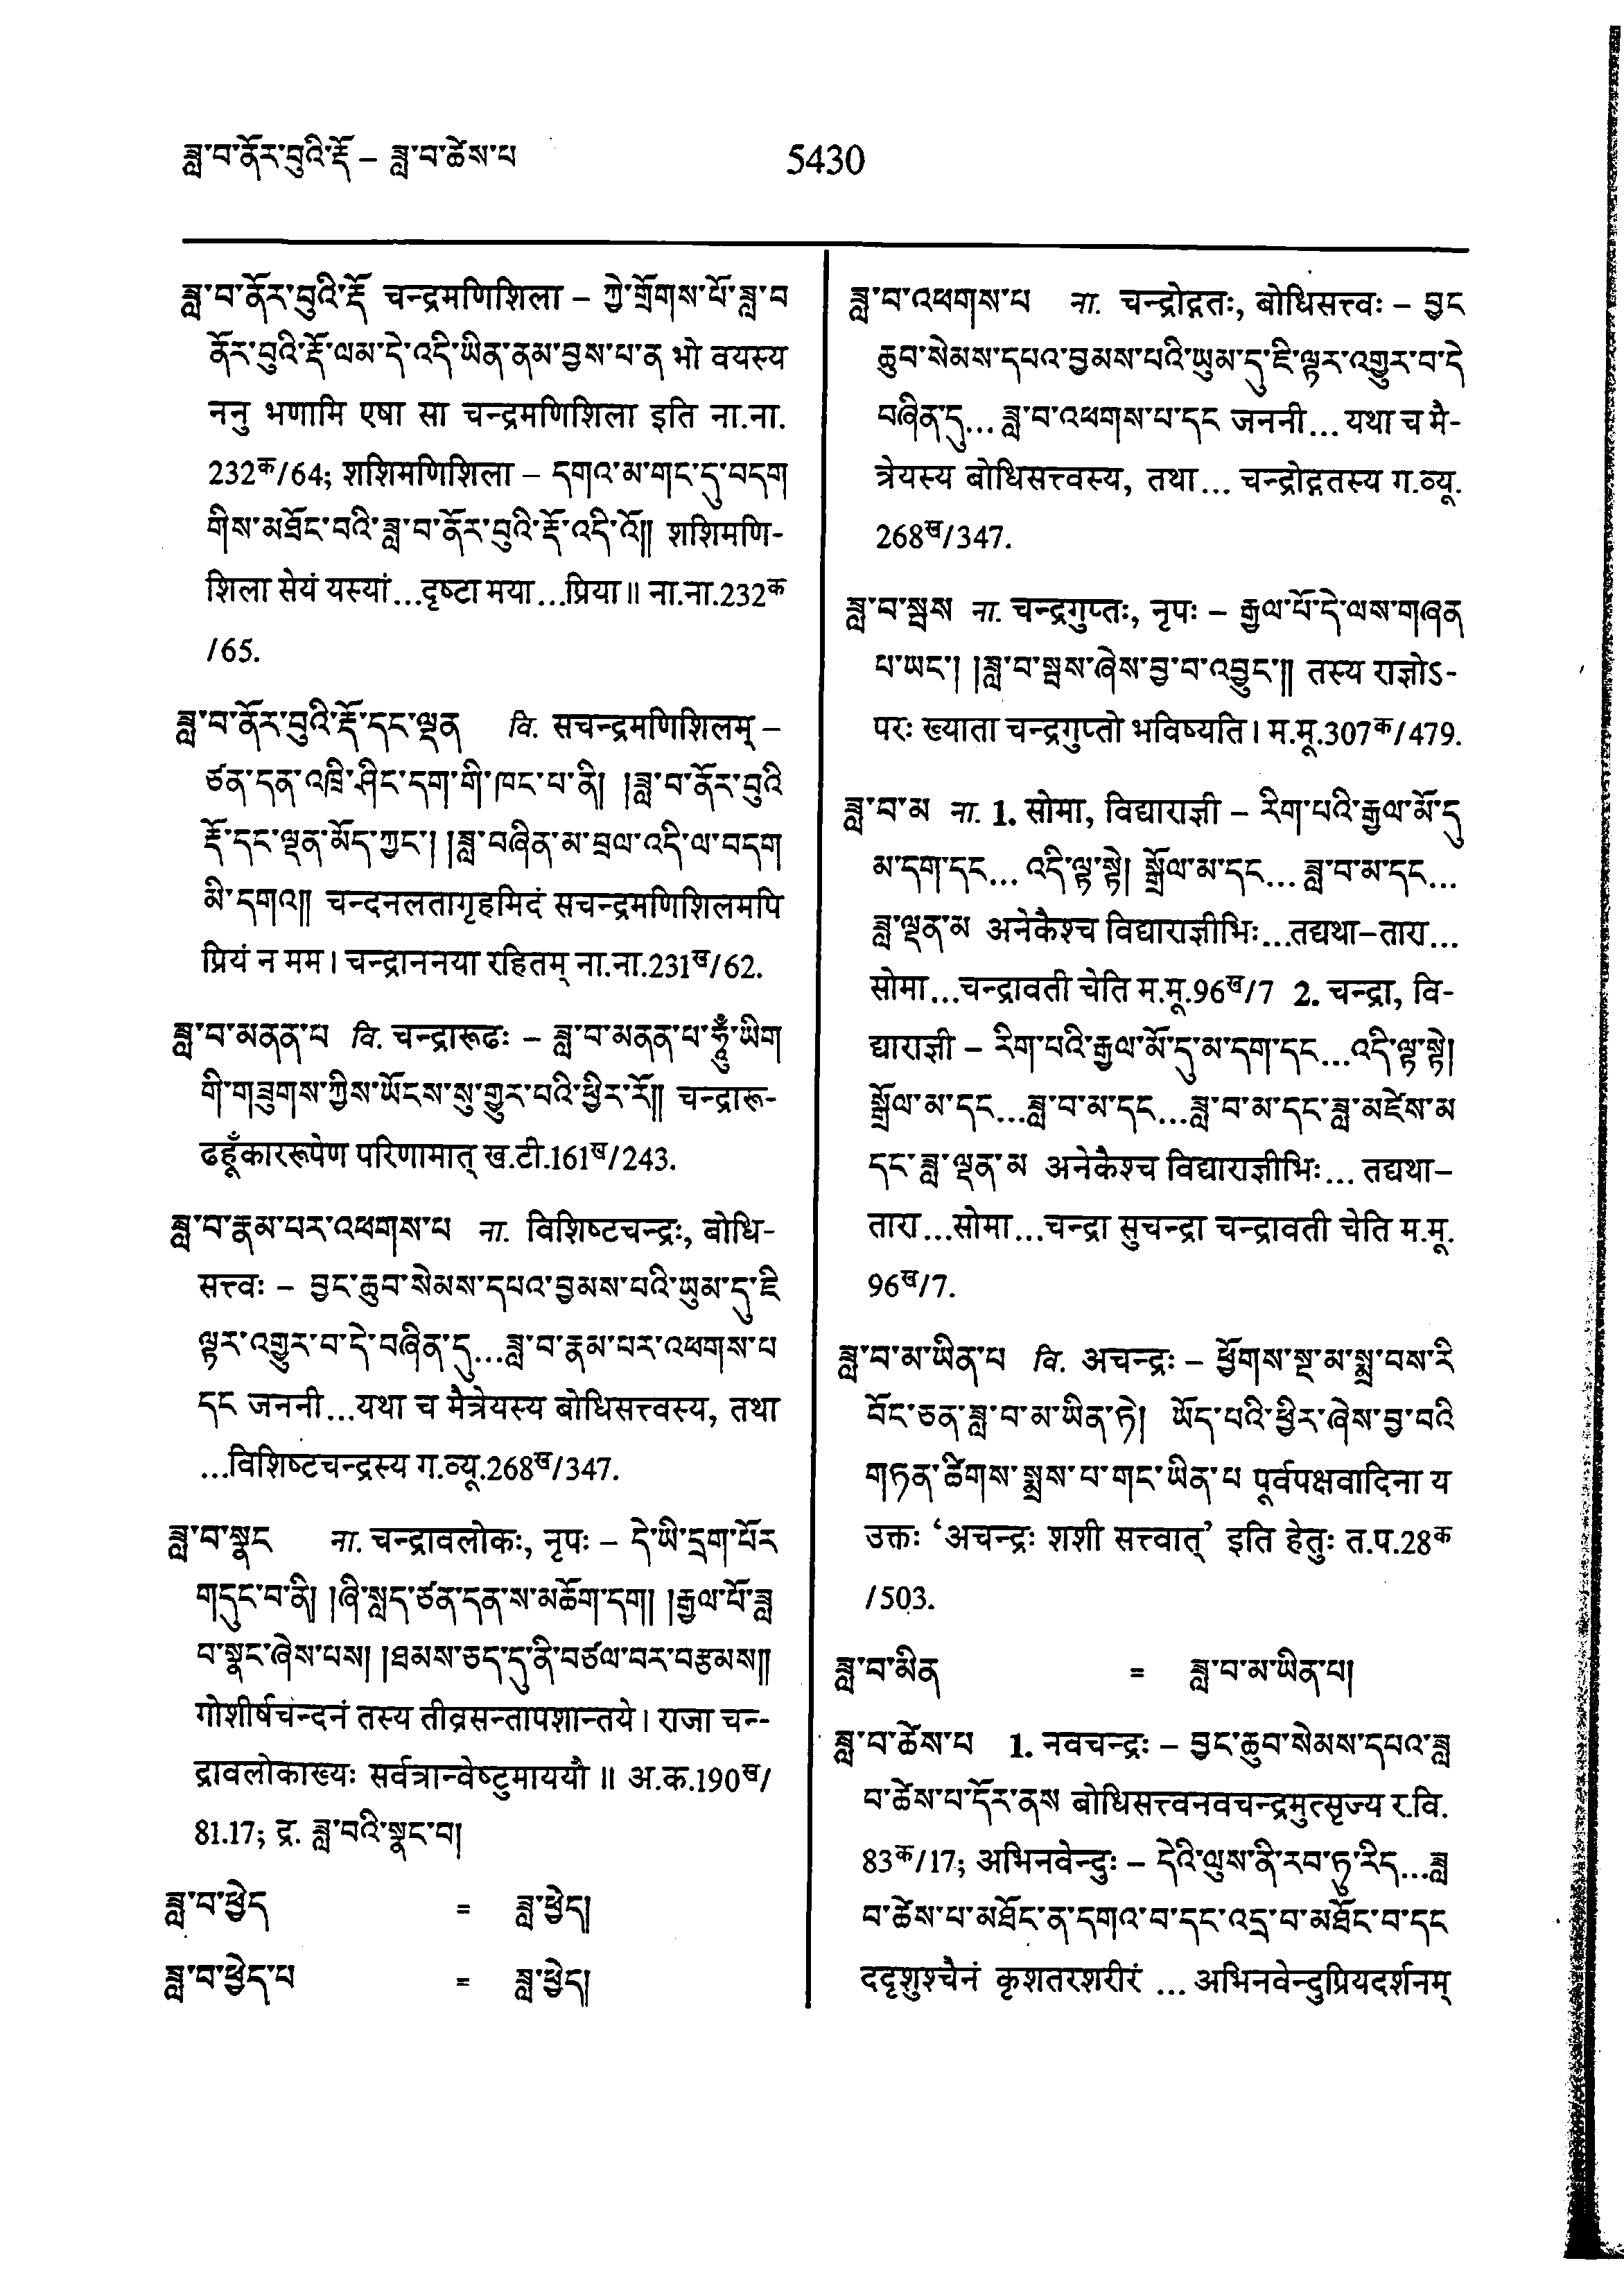 ཟླ་བ་ནོར་བུའི་རྡོ – ཟླ་བ་ཚེས་པ
5430
ཟླ་བ་ནོར་བུའི་རྡོ चन्द्रमणिशिला – ཀྱེ་གྲོགས་པོ་ཟླ་བ
ནོར་བུའི་རྡོ་ལམ་དེ་འདི་ཡིན་ནམ་བྱས་པ་ན भो वयस्य
ननु भणामि एषा सा चन्द्रमणिशिला इति ना.ना.
232क/64; शशिमणिशिला – དགའ་མ་གང་དུ་བདག
གིས་མཐོང་བའི་ཟླ་བ་ནོར་བུའི་རྡོ་འདི་འོ༎ शशिमणि-
शिला सेयं यस्यां...दृष्टा मया...प्रिया॥ ना.ना.232क
/65.
ཟླ་བ་ནོར་བུའི་རྡོ་དང་ལྡན वि. सचन्द्रमणिशिलम् –
ཙན་དན་འཁྲི་ཤིང་དག་གི་ཁང་པ་ནི། །ཟླ་བ་ནོར་བུའི
རྡོ་དང་ལྡན་མོད་ཀྱང་། །ཟླ་བཞིན་མ་བྲལ་འདི་ལ་བདག
མི་དགའ༎ चन्दनलतागृहमिदं सचन्द्रमणिशिलमपि
प्रियं न मम। चन्द्राननया रहितम् ना.ना.231ख/62.
ཟླ་བ་མནན་པ वि. चन्द्रारूढः – ཟླ་བ་མནན་པ་ཧཱུྃ་ཡིག
གི་གཟུགས་ཀྱིས་ཡོངས་སུ་གྱུར་པའི་ཕྱིར་རོ༎ चन्द्रारू-
ढहूँकाररूपेण परिणामात् ख.टी.161ख/243.
ཟླ་བ་རྣམ་པར་འཕགས་པ ना. विशिष्टचन्द्रः, बोधि-
सत्त्वः – བྱང་ཆུབ་སེམས་དཔའ་བྱམས་པའི་ཡུམ་དུ་ཇི
ལྟར་འགྱུར་བ་དེ་བཞིན་དུ...ཟླ་བ་རྣམ་པར་འཕགས་པ
དང जननी...यथा च मैत्रेयस्य बोधिसत्त्वस्य, तथा
...विशिष्टचन्द्रस्य ग.व्यू.268ख/347.
ཟླ་བ་སྣང ना. चन्द्रावलोकः, नृपः – དེ་ཡི་དྲག་པོར
གདུང་བ་ནི། །ཞི་སླད་ཙན་དན་ས་མཆོག་དག། །རྒྱལ་པོ་ཟླ
བ་སྣང་ཞེས་པས། །ཐམས་ཅད་དུ་ནི་བཙལ་བར་བརྩམས༎
गोशीर्षचन्दनं तस्य तीव्रसन्तापशान्तये। राजा चन्-
द्रावलोकाख्यः सर्वत्रान्वेष्टुमाययौ॥ अ.क.190ख/
81.17; द्र. ཟླ་བའི་སྣང་བ།
ཟླ་བ་ཕྱེད = ཟླ་ཕྱེད།
ཟླ་བ་ཕྱེད་པ = ཟླ་ཕྱེད།
ཟླ་བ་འཕགས་པ ना. चन्द्रोद्गतः, बोधिसत्त्वः – བྱང
ཆུབ་སེམས་དཔའ་བྱམས་པའི་ཡུམ་དུ་ཇི་ལྟར་འགྱུར་བ་དེ
བཞིན་དུ... ཟླ་བ་འཕགས་པ་དང जननी... यथा च मै-
त्रेयस्य बोधिसत्त्वस्य, तथा... चन्द्रोद्गतस्य ग.व्यू.
268ख/347.
ཟླ་བ་སྦས ना. चन्द्रगुप्तः, नृपः – རྒྱལ་པོ་དེ་ལས་གཞན
པ་ཡང་། །ཟླ་བ་སྦས་ཞེས་བྱ་བ་འབྱུང་༎ तस्य राज्ञोऽ-
परः ख्याता चन्द्रगुप्तो भविष्यति। म.मू.307क/479.
ཟླ་བ་མ ना. 1. सोमा, विद्याराज्ञी – རིག་པའི་རྒྱལ་མོ་དུ
མ་དག་དང... འདི་ལྟ་སྟེ། སྒྲོལ་མ་དང... ཟླ་བ་མ་དང...
ཟླ་ལྡན་མ अनेकैश्च विद्याराज्ञीभिः...तद्यथा–तारा...
सोमा...चन्द्रावती चेति म.मू.96ख/7 2. चन्द्रा, वि-
द्याराज्ञी – རིག་པའི་རྒྱལ་མོ་དུ་མ་དག་དང...འདི་ལྟ་སྟེ།
སྒྲོལ་མ་དང...ཟླ་བ་མ་དང...ཟླ་བ་མ་དང་ཟླ་མཛེས་མ
དང་ཟླ་ལྡན་མ अनेकैश्च विद्याराज्ञीभिः... तद्यथा–
तारा...सोमा...चन्द्रा सुचन्द्रा चन्द्रावती चेति म.मू.
96ख/7.
ཟླ་བ་མ་ཡིན་པ वि. अचन्द्रः – ཕྱོགས་སྔ་མ་སྨྲ་བས་རི
བོང་ཅན་ཟླ་བ་མ་ཡིན་ཏེ། ཡོད་པའི་ཕྱིར་ཞེས་བྱ་བའི
གཏན་ཚིགས་སྨྲས་པ་གང་ཡིན་པ पूर्वपक्षवादिना य
उक्तः ‘अचन्द्रः शशी सत्त्वात्’ इति हेतुः त.प.28क
/503.
ཟླ་བ་མིན = ཟླ་བ་མ་ཡིན་པ།
ཟླ་བ་ཚེས་པ 1. नवचन्द्रः – བྱང་ཆུབ་སེམས་དཔའ་ཟླ
བ་ཚེས་པ་དོར་ནས बोधिसत्त्वनवचन्द्रमुत्सृज्य र.वि.
83क/17; अभिनवेन्दुः – དེའི་ལུས་ནི་རབ་ཏུ་རིད...ཟླ
བ་ཚེས་པ་མཐོང་ན་དགའ་བ་དང་འདྲ་བ་མཐོང་བ་དང
ददृशुश्चैनं कृशतरशरीरं ... अभिनवेन्दुप्रियदर्शनम्